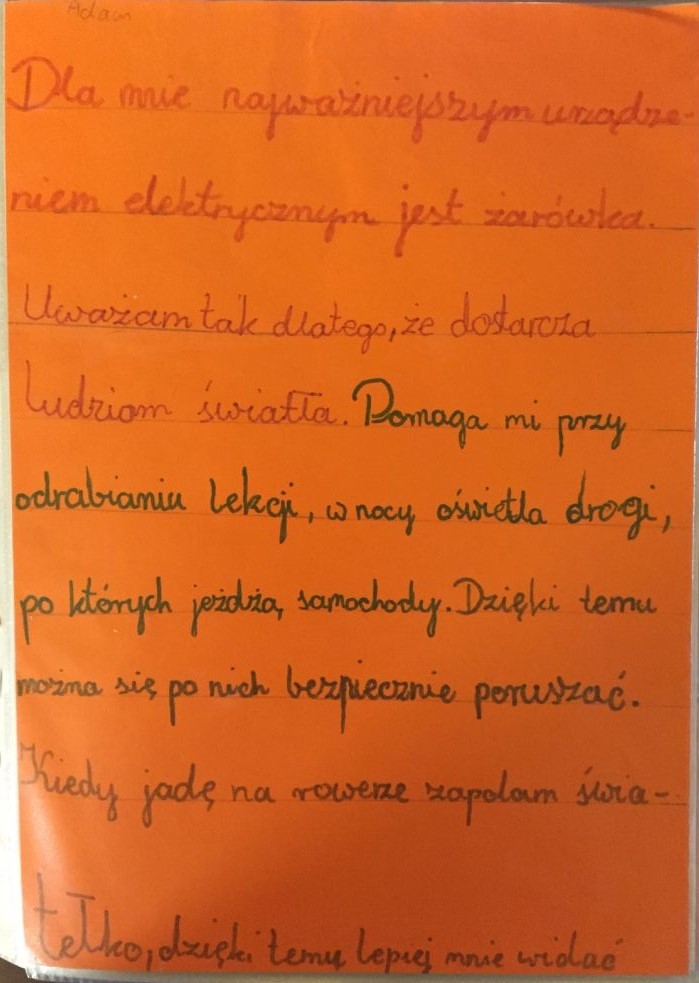 Adam
Dla mnie najważniejszym urządze-
niem elektrycznym jest żarówka.
Uważam tak dlatego, że dostarcza
ludziom światła. Pomaga mi przy
odrabianiu lekcji, w nocy oświetla drogi,
po których jeżdżą samochody. Dzięki temu
można się po nich bezpiecznie poruszać.
Kiedy jadę na rowerze zapalam świa-
tełko, dzięki temu lepiej mnie widać